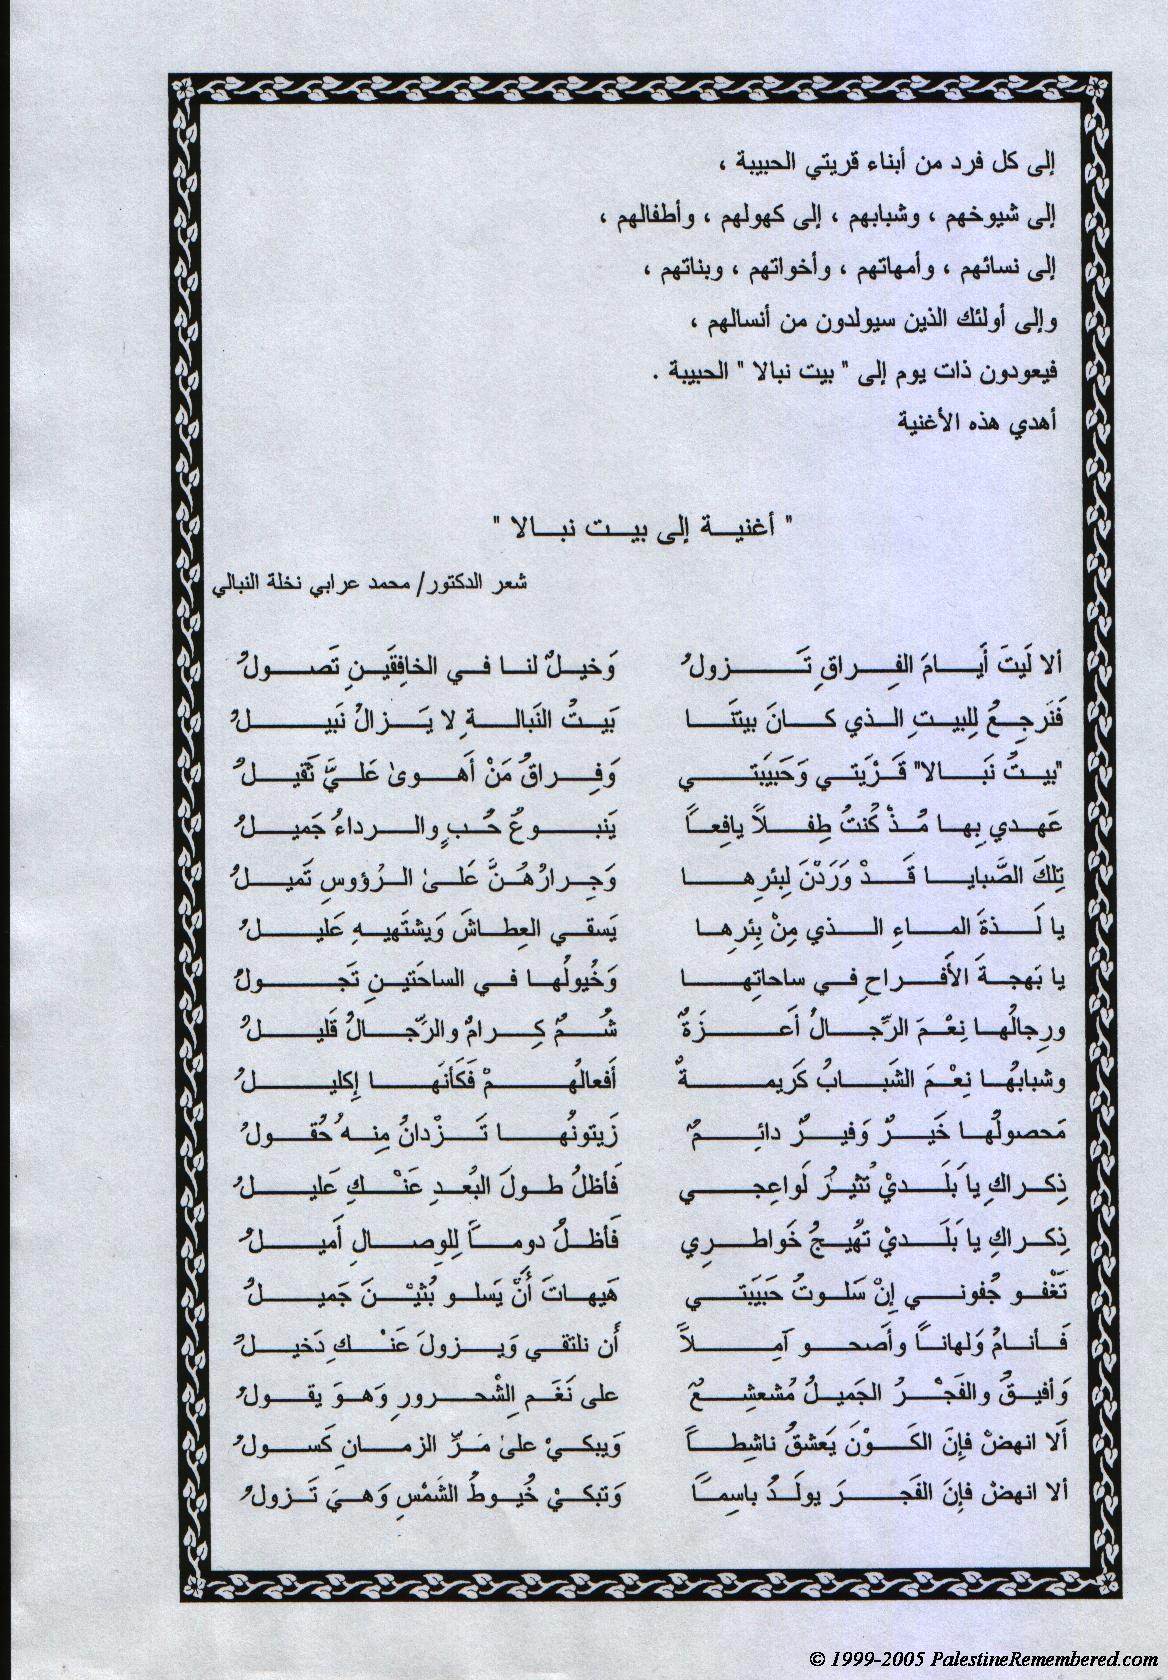 إلى كل فرد من أبناء قريتي الحبيبة ،
إلى شيوخهم ، وشبابهم ، إلى كهولهم ، وأطفالهم ،
إلى نسائهم ، وأمهاتهم ، وأخواتهم ، وبناتهم ،
وإلى أولئك الذين سيولدون من أنسالهم ،
فيعودون ذات يوم إلى " بيت نبالا " الحبيبة .
أهدي هذه الأغنية
" أغنيــة إلى بيــت نبــالا "
شعر الدكتور/ محمد عرابي نخلة النبالي
ألا لَيتَ أَيــامَ الفِــراقِ تَــزولُ وَخيـلٌ لنـا فـي الخافِقَيـنِ تَصـولُ
فَنَرجِـعُ لِلبيـتِ الـذي كـانَ بيتَنَـا بَيـتُ النَبالـةِ لا يَـزالُ نَبيـلُ
"بيـتُ نَبـالا" قَـرْيَتـي وَحَبيبَتـي وَفِـراقُ مَنْ أَهـوىٰ عَلـيَّ ثَقيـلُ
عَهـدي بِهـا مُـذْ كُنتُ طِفـلاً يافِعـاً يَنبـوعُ حُـبٍ والـرداءُ جَميـلُ
تِلكَ الصَّبايـا قَـدْ وَرَدْنَ لِبئرِهـا وَجِـرارُهُـنَّ عَلـىٰ الـرُؤوسِ تَميـلُ
يا لَـذةَ المـاءِ الـذي مِنْ بِئرِهـا يَسقـي العِطـاشَ وَيشتَهيـهِ عَليـلُ
يا بَهجـةَ الأَفـراحِ فـي ساحاتِهـا وَخُيولُهـا فـي الساحَتَيـنِ تَجـولُ
ورِجالُهـا نِعْـمَ الرِّجـالُ أَعـزَةٌ شُـمٌ كِـرامٌ والرِّجـالُ قَليـلُ
وشبابُهـا نِعْـمَ الشَبـابُ كَريمـةٌ أَفعالُهـمْ فَكَأَنَهـا إكليـلُ
مَحصولُهـا خَيـرٌ وَفيـرٌ دائِـمٌ زَيتونُهـا تَـزْدانُ مِنـهُ حُقـولُ
ذِكـراكِ يا بَلَـديْ تُثيـرُ لَواعِجـي فَأظلُ طـولَ البُعـدِ عَنْـكِ عَليـلُ
ذِكـراكِ يا بَلَـديْ تَهُيـجُ خَواطـرِي فَأظـلُ دومـاً لِلوِصـالِ أَميـلُ
تَغْفـو جُفونـي إنْ سَلـوتُ حَبَيبَتـي هَيهـاتَ أَنْ يَسلـو بُثيْـنَ جَميـلُ
فَـأنـامُ وَلهانـاً وأصحـو آمِـلاً أن نلتقـي وَيـزولَ عَنْـكِ دَخيـلُ
وَأفيـقُ والفَجْـرُ الجَميـلُ مُشعشِـعٌ على نَغَـمِ الِشْحـرورِ وَهـوَ يقـولُ
ألا انهضْ فإنَ الكَـوْنَ يَعشقُ ناشِطـاً وَيبكـيْ علىٰ مَـرِّ الزمـانِ كَسـولُ
ألا انهضْ فإنَ الفَجـرَ يولَـدُ باسِمـاً وَتبكـيْ خُيـوطُ الشَمْسِ وَهـيَ تَـزولُ
© 1999-2005 PalestineRemembered.com